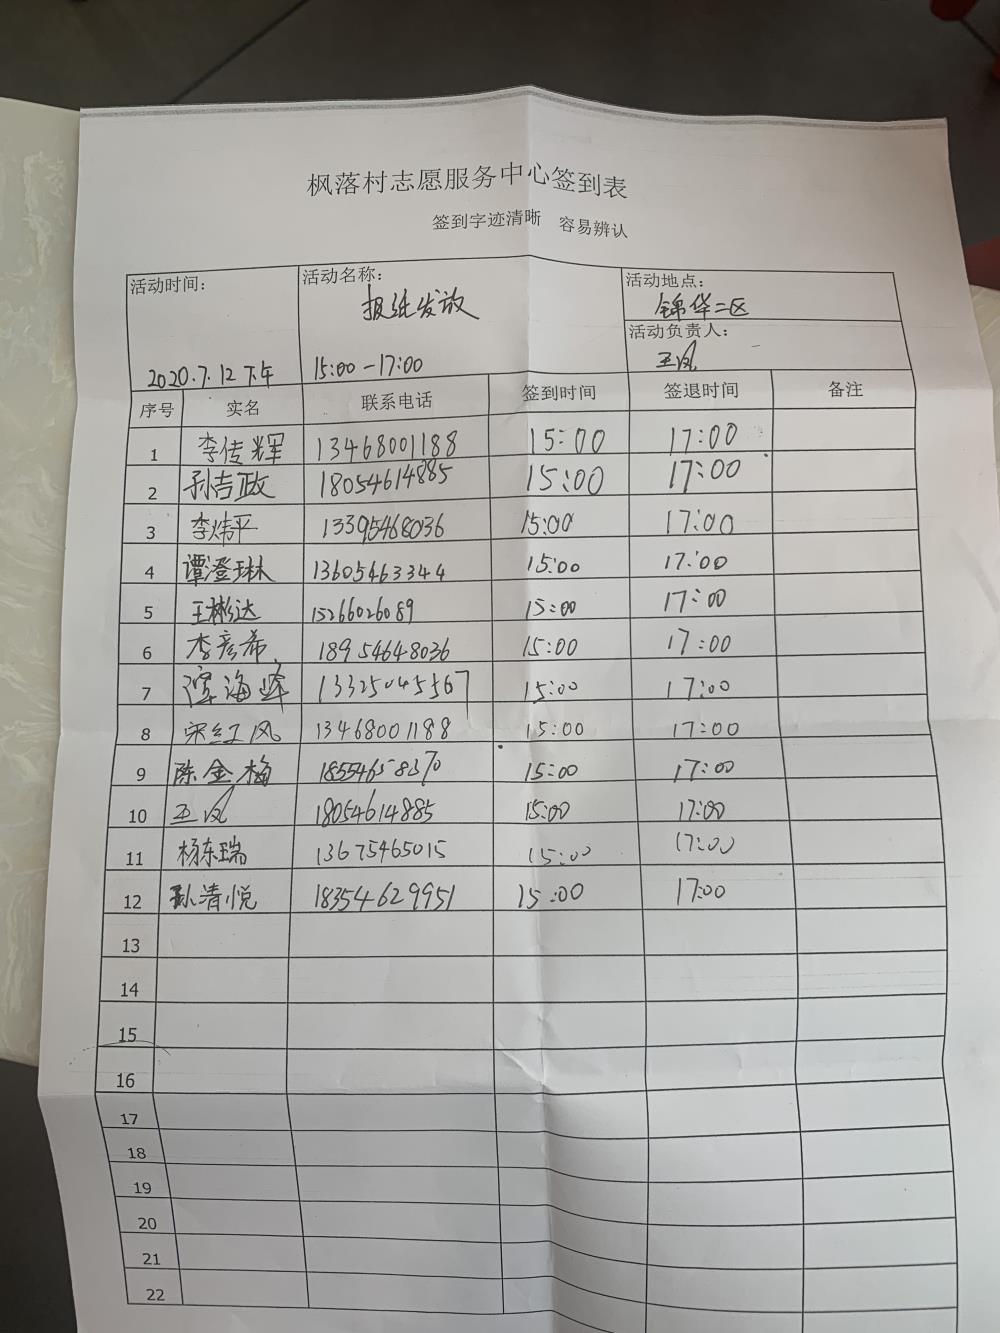 枫落村志愿服务中心签到表
签到字迹清晰 容易辨认
活动时间： 活动名称： 活动地点：
报纸发放 锦华二区
活动负责人：
2020.7.12下午 15:00-17:00 王凤
序号 实名 联系电话 签到时间 签退时间 备注
1 李传辉 13468001188 15:00 17:00
2 孙吉政 18054614885 15:00 17:00
3 李炜平 13395468036 15:00 17:00
4 谭澄琳 13605463344 15:00 17:00
5 王彬达 15266026089 15:00 17:00
6 李彦希 18954648036 15:00 17:00
7 海峰 13325045567 15:00 17:00
8 宋红凤 13468001188 15:00 17:00
9 陈金梅 18554658370 15:00 17:00
10 王凤 18054614885 15:00 17:00
11 杨东瑞 13675465015 15:00 17:00
12 孙清悦 18354629951 15:00 17:00
13
14
15
16
17
18
19
20
21
22